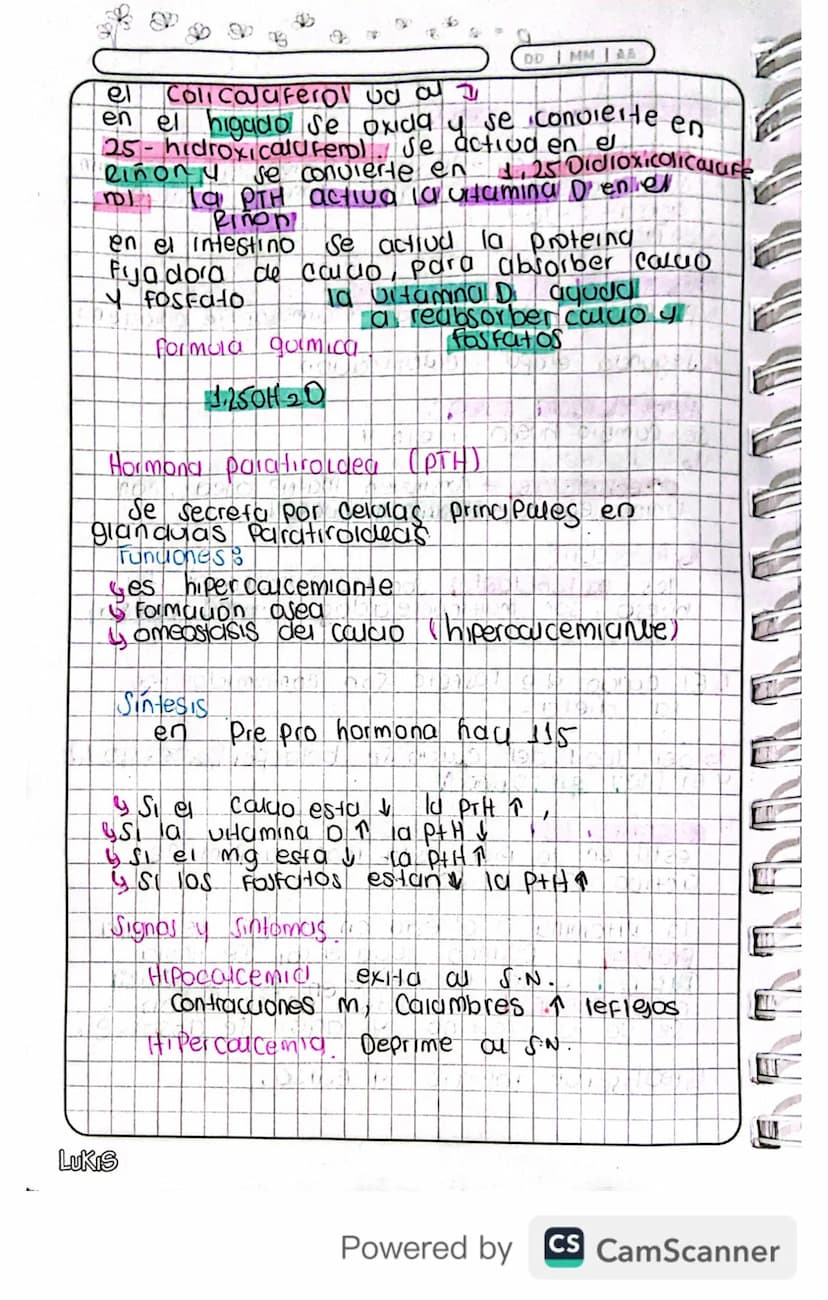 DD | MM | AA
el Colicalciferol va al
en el higado se oxida y se convierte en
25-hidroxicalciferol. se activa en el
Riñon y se convierte en 1,25 Didroxicolicalcife
rol la PTH activa la vitamina D en el
Riñon
en el intestino se activa la proteina
Fijadora de calcio, para absorber calcio
y fosfato la vitamina D. ayuda
a reabsorber calcio y
fosfatos
formula quimica.
1,25OH2D
Hormona paratiroidea (PTH)
Se secreta por celulas principales en
glandulas Paratiroideas
Funciones:
es hipercalcemiante
Formación osea
omeostasis del calcio (hipercalcemiante)
Síntesis
en Pre pro hormona hay 115
Si el calcio esta ↓ la PTH ↑,
Si la vitamina D ↑ la PtH ↓
Si el mg esta ↓ la PtH ↑
Si los Fosfatos estan ↓ la PtH ↑
Signos y sintomas.
Hipocalcemia exita al S.N.
Contracciones m, Calambres ↑ reflejos
Hipercalcemia. Deprime al S.N.
LUKIS
Powered by CS CamScanner